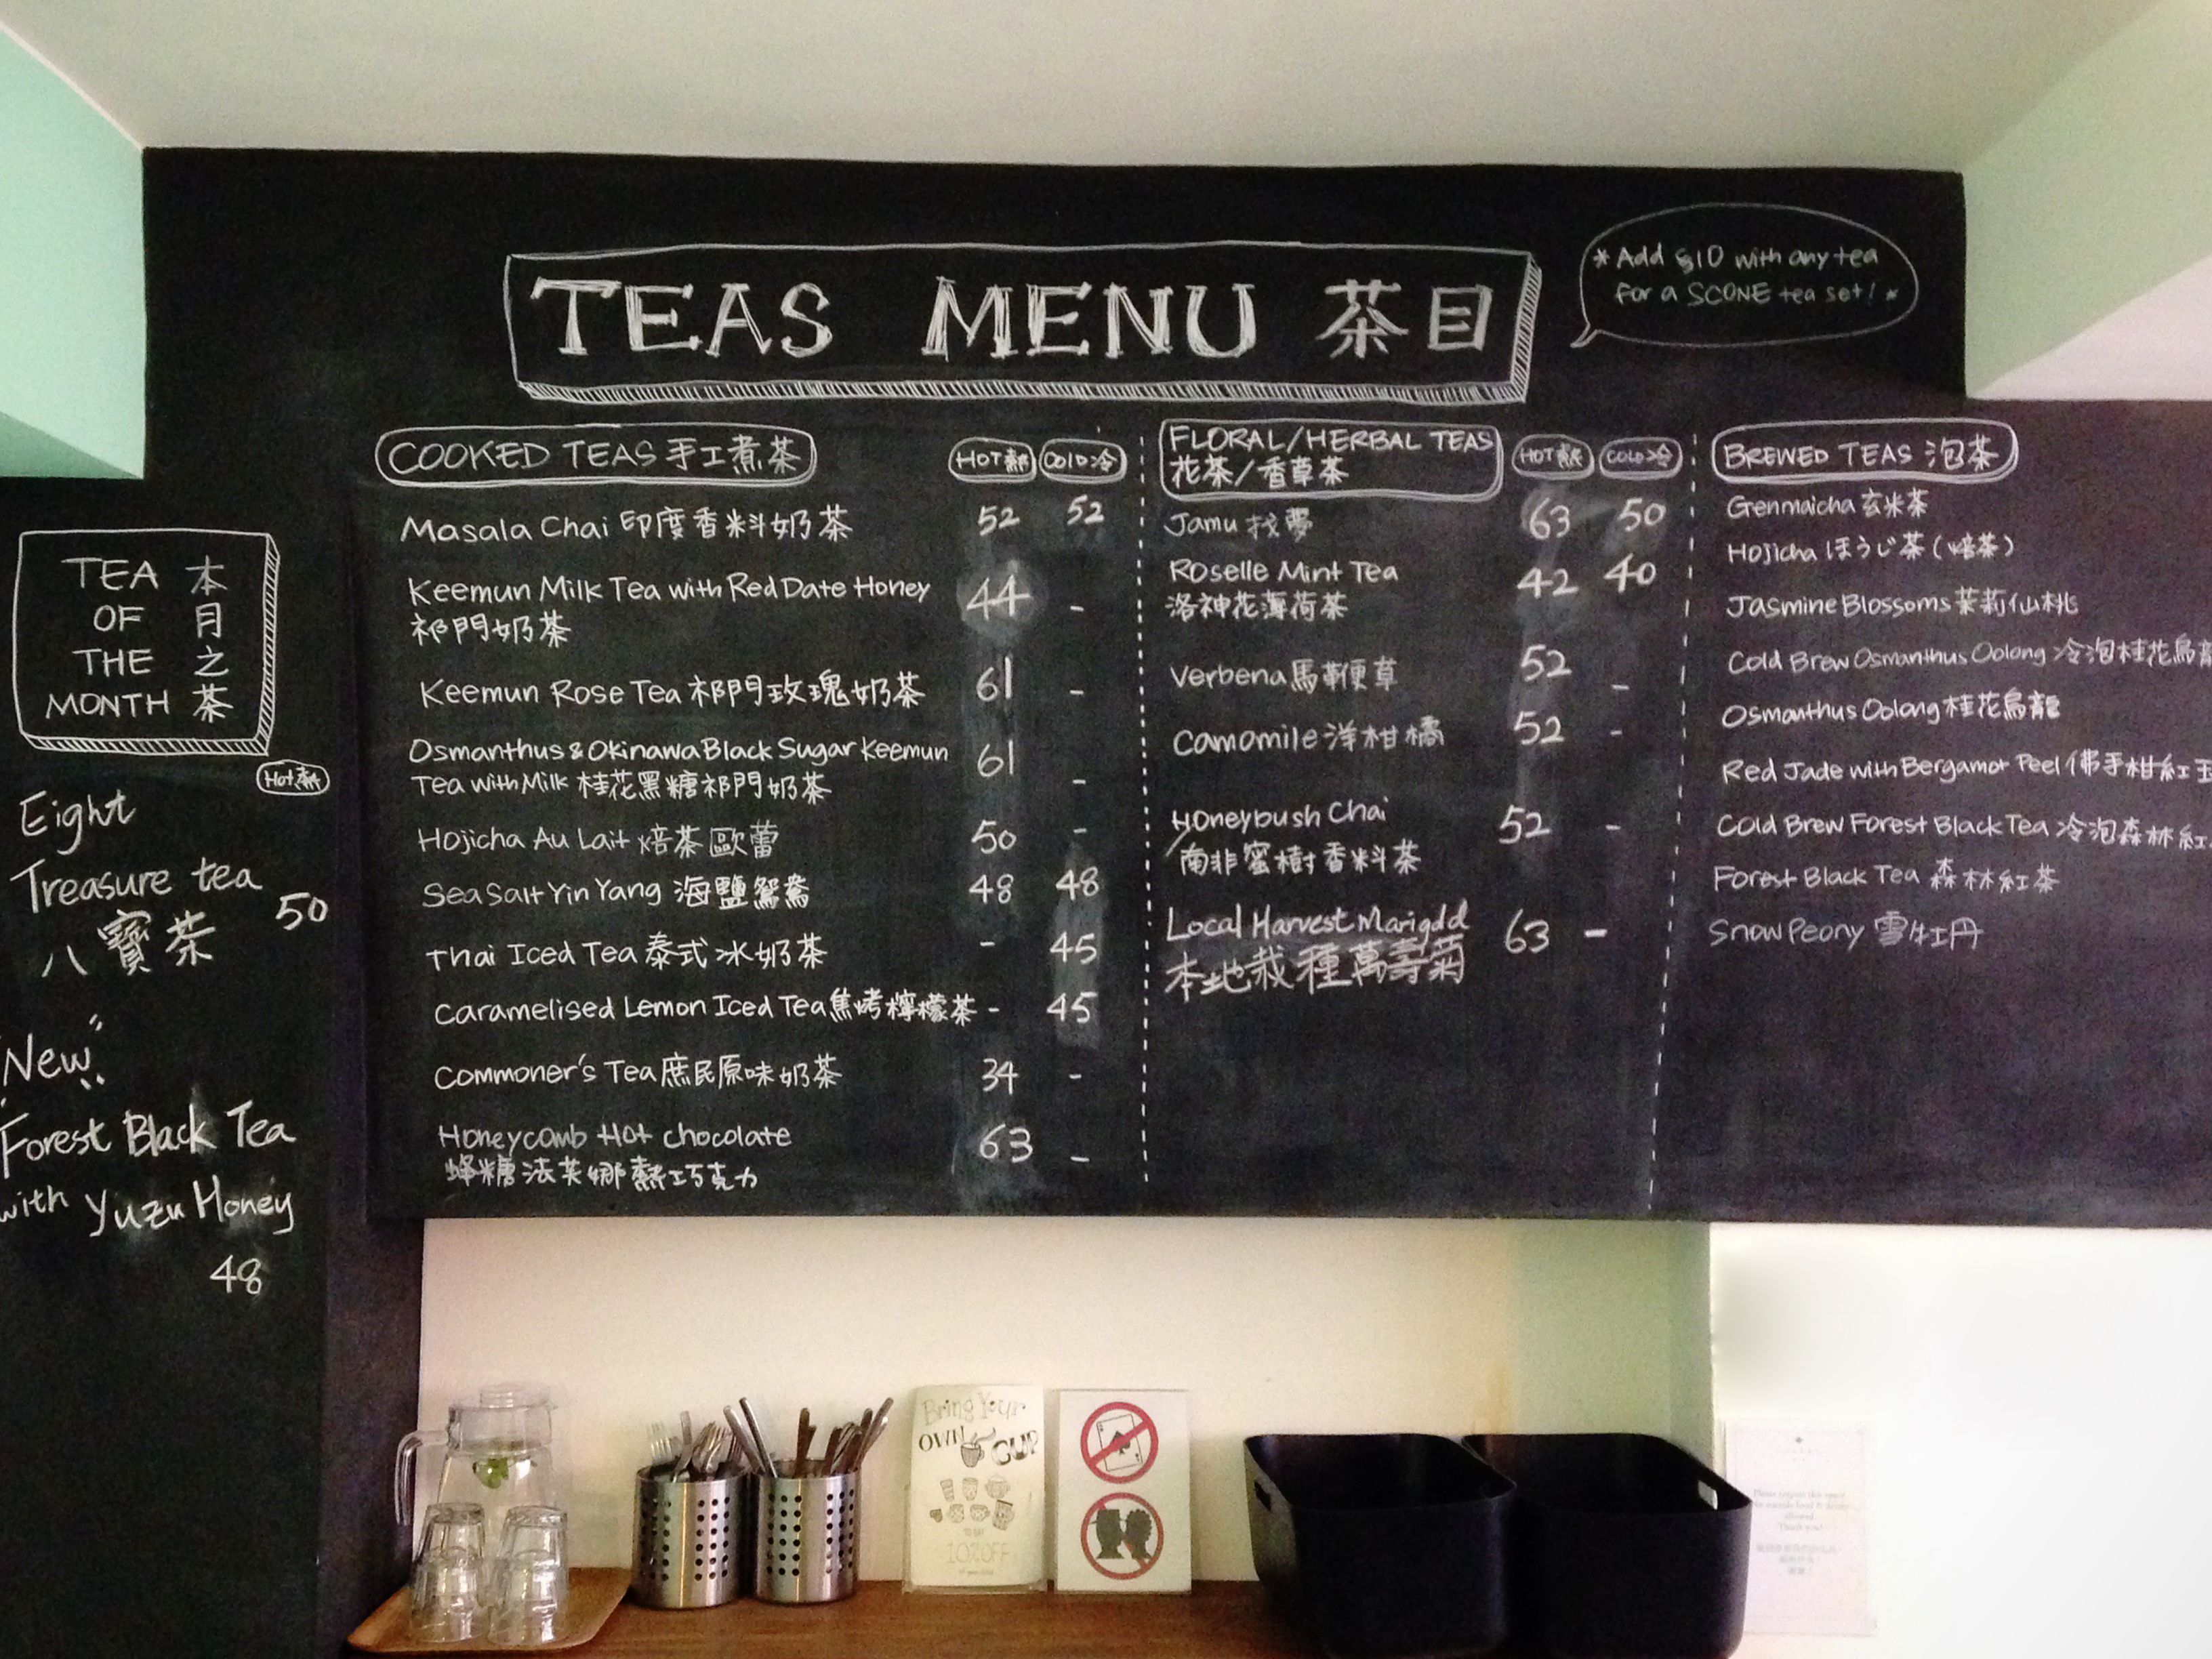 TEAS MENU 茶目
*Add $10 with any tea
for a SCONE tea set! *
TEA 本
OF 月
THE 之
MONTH 茶
HOT 熱
Eight
Treasure tea
八寶茶 50
"New"
Forest Black Tea
with Yuzu Honey
48
COOKED TEAS 手工煮茶 HOT 熱 COLD 冷
Masala Chai 印度香料奶茶 52 52
Keemun Milk Tea with Red Date Honey 44 -
祁門奶茶
Keemun Rose Tea 祁門玫瑰奶茶 61 -
Osmanthus & Okinawa Black Sugar Keemun 61 -
Tea with Milk 桂花黑糖祁門奶茶
Hojicha Au Lait 焙茶歐蕾 50 -
Sea Salt Yin Yang 海鹽鴛鴦 48 48
Thai Iced Tea 泰式冰奶茶 - 45
Caramelised Lemon Iced Tea 焦烤檸檬茶 - 45
Commoner's Tea 庶民原味奶茶 34 -
Honeycomb Hot Chocolate 63 -
蜂糖法芙娜熱巧克力
FLORAL/HERBAL TEAS HOT 熱 COLD 冷
花茶/香草茶
Jamu 找夢 63 50
Roselle Mint Tea 42 40
洛神花薄荷茶
Verbena 馬鞭草 52 -
Camomile 洋柑橘 52 -
Honeybush Chai 52 -
南非蜜樹香料茶
Local Harvest Marigold 63 -
本地栽種萬壽菊
BREWED TEAS 泡茶
Genmaicha 玄米茶
Hojicha ほうじ茶(焙茶)
Jasmine Blossoms 茉莉仙桃
Cold Brew Osmanthus Oolong 冷泡桂花烏龍
Osmanthus Oolong 桂花烏龍
Red Jade with Bergamot Peel 佛手柑紅玉
Cold Brew Forest Black Tea 冷泡森林紅
Forest Black Tea 森林紅茶
Snow Peony 雪牡丹
Bring Your
OWN CUP
10% OFF